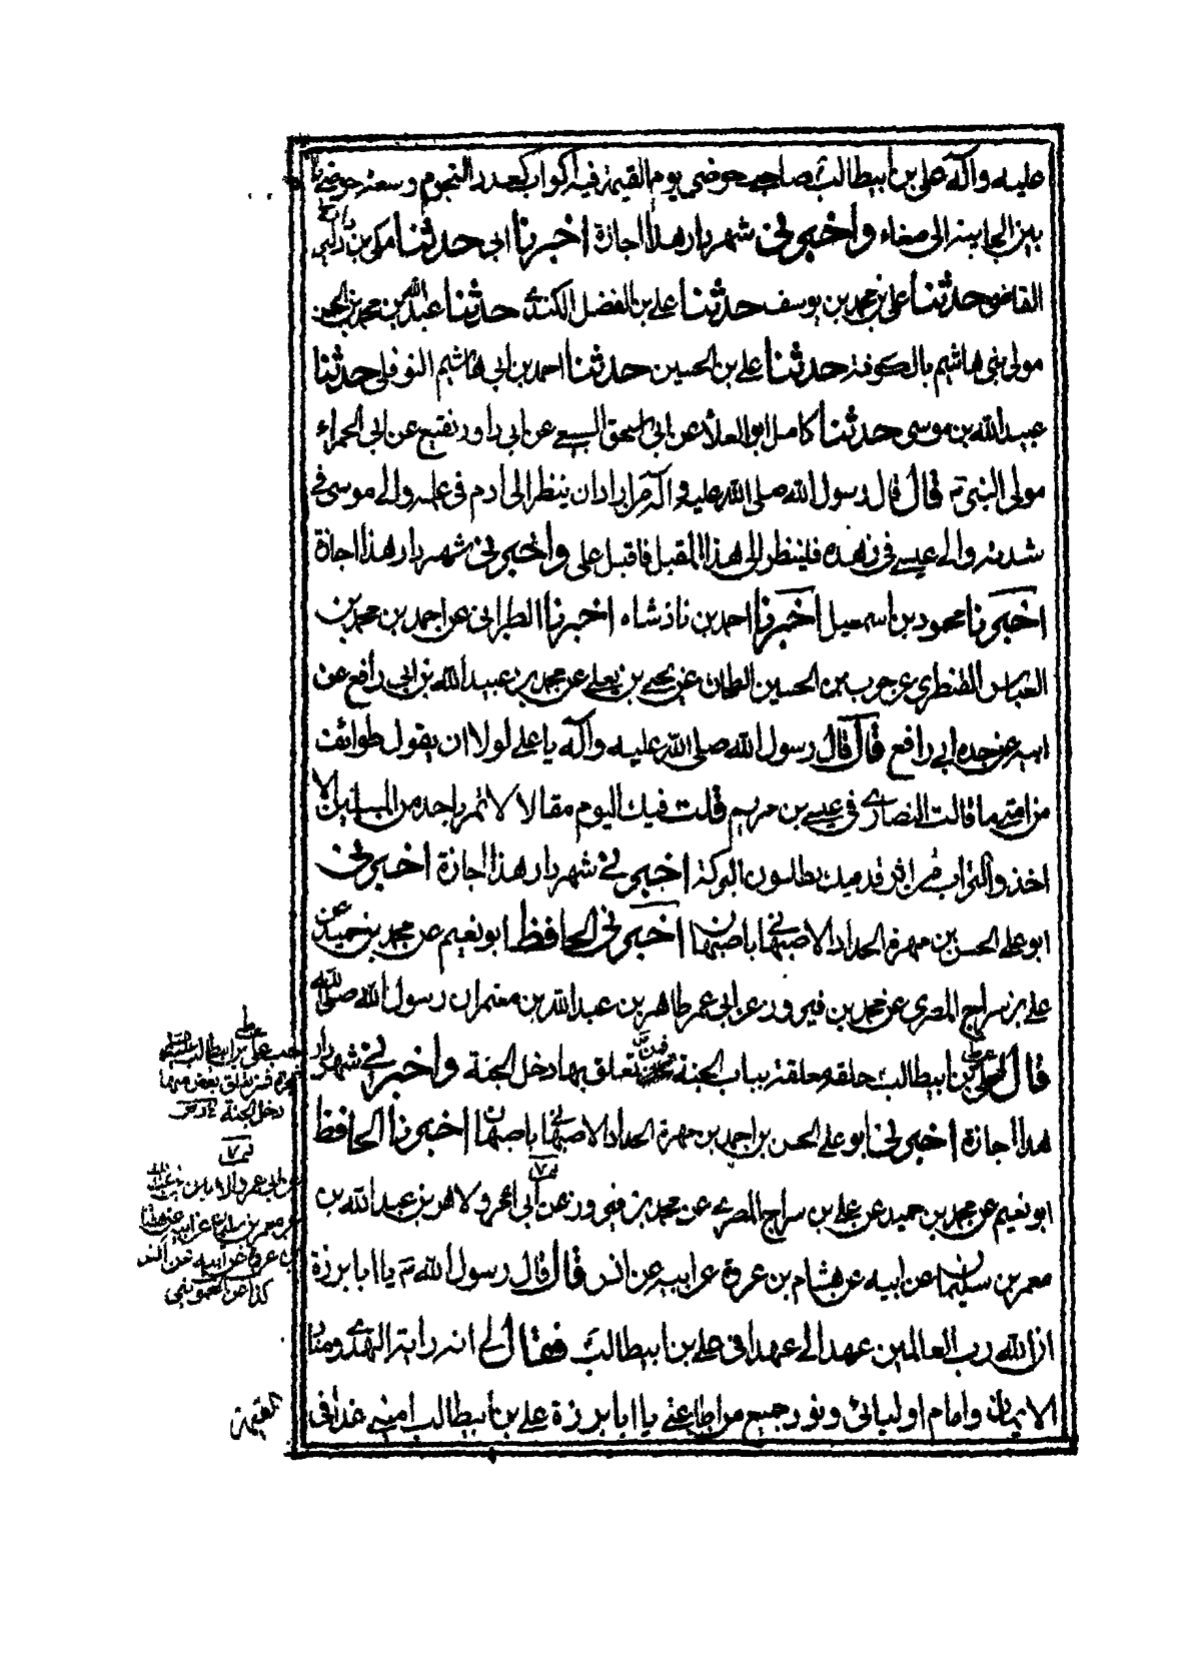 عليه وآله علي بن ابيطالب صاحب حوضي يوم القيمة فيه اكواب كعدد النجوم وسعة حوضي ما
بين الجابية الى صنعاء واخبرني شهردار هذا اجازة اخبرنا ابي حدثنا مكي بن دكين
القاضي حدثنا علي بن محمد بن يوسف حدثنا علي بن الفضل الكندي حدثنا عبد الله بن محمد بن الحسن
مولى بني هاشم بالكوفة حدثنا علي بن الحسين حدثنا احمد بن ابي هاشم النوفلي حدثنا
عبيد الله بن موسى حدثنا كامل ابو العلاء عن ابي اسحق السبيعي عن ابي داود نفيع عن ابي الحمراء
مولى النبي ص قال قال رسول الله صلى الله عليه وآله من اراد ان ينظر الى ادم في علمه والى موسى في
شدته والى عيسى في زهده فلينظر الى هذا المقبل فاقبل علي واخبرني شهردار هذا اجازة
اخبرنا محمود بن اسمعيل اخبرنا احمد بن فاذشاه اخبرنا الطبراني عن احمد بن محمد بن
العباس القنطري عن حرب بن الحسين الطحان عن يحيى بن يعلى عن محمد بن عبيد الله بن ابي رافع عن
ابيه عن جده ابي رافع قال قال رسول الله صلى الله عليه وآله يا علي لولا ان يقول طوائف
من امتي ما قالت النصارى في عيسى بن مريم قلت فيك اليوم مقالا لا تمر باحد من المسلمين الا
اخذوا التراب من اثر قدميك يطلبون البركة اخبرني شهردار هذا اجازة اخبرني
ابو علي الحسن بن مهرة الحداد الاصبهاني باصبهان اخبرني الحافظ ابو نعيم عن محمد بن حميد عن
علي بن سراج المصري عن محمد بن فيروز عن ابي عمر طاهر بن عبد الله بن معتمر ان رسول الله صلى الله
قال علي بن ابيطالب حلقة معلقة بباب الجنة من تعلق بها دخل الجنة واخبرني شهردار
هذا اجازة اخبرني ابو علي الحسن بن احمد بن مهرة الحداد الاصبهاني باصبهان اخبرنا الحافظ
ابو نعيم عن محمد بن حميد عن علي بن سراج المصري عن محمد بن فيروز عن ابي عمرو لاهز بن عبد الله بن
معمر بن سليمان عن ابيه عن هشام بن عروة عن ابيه عن انس قال قال رسول الله ص يا ابا برزة
ان الله رب العالمين عهد الي عهدا في علي بن ابيطالب فقال لي انه راية الهدى ومنار
الايمان وامام اوليائي ونور جميع من اطاعني يا ابا برزة علي بن ابيطالب اميني غدا في
القيمة
حب علي بن ابيطالب
شجرة فمن تعلق بغصن منها
دخل الجنة